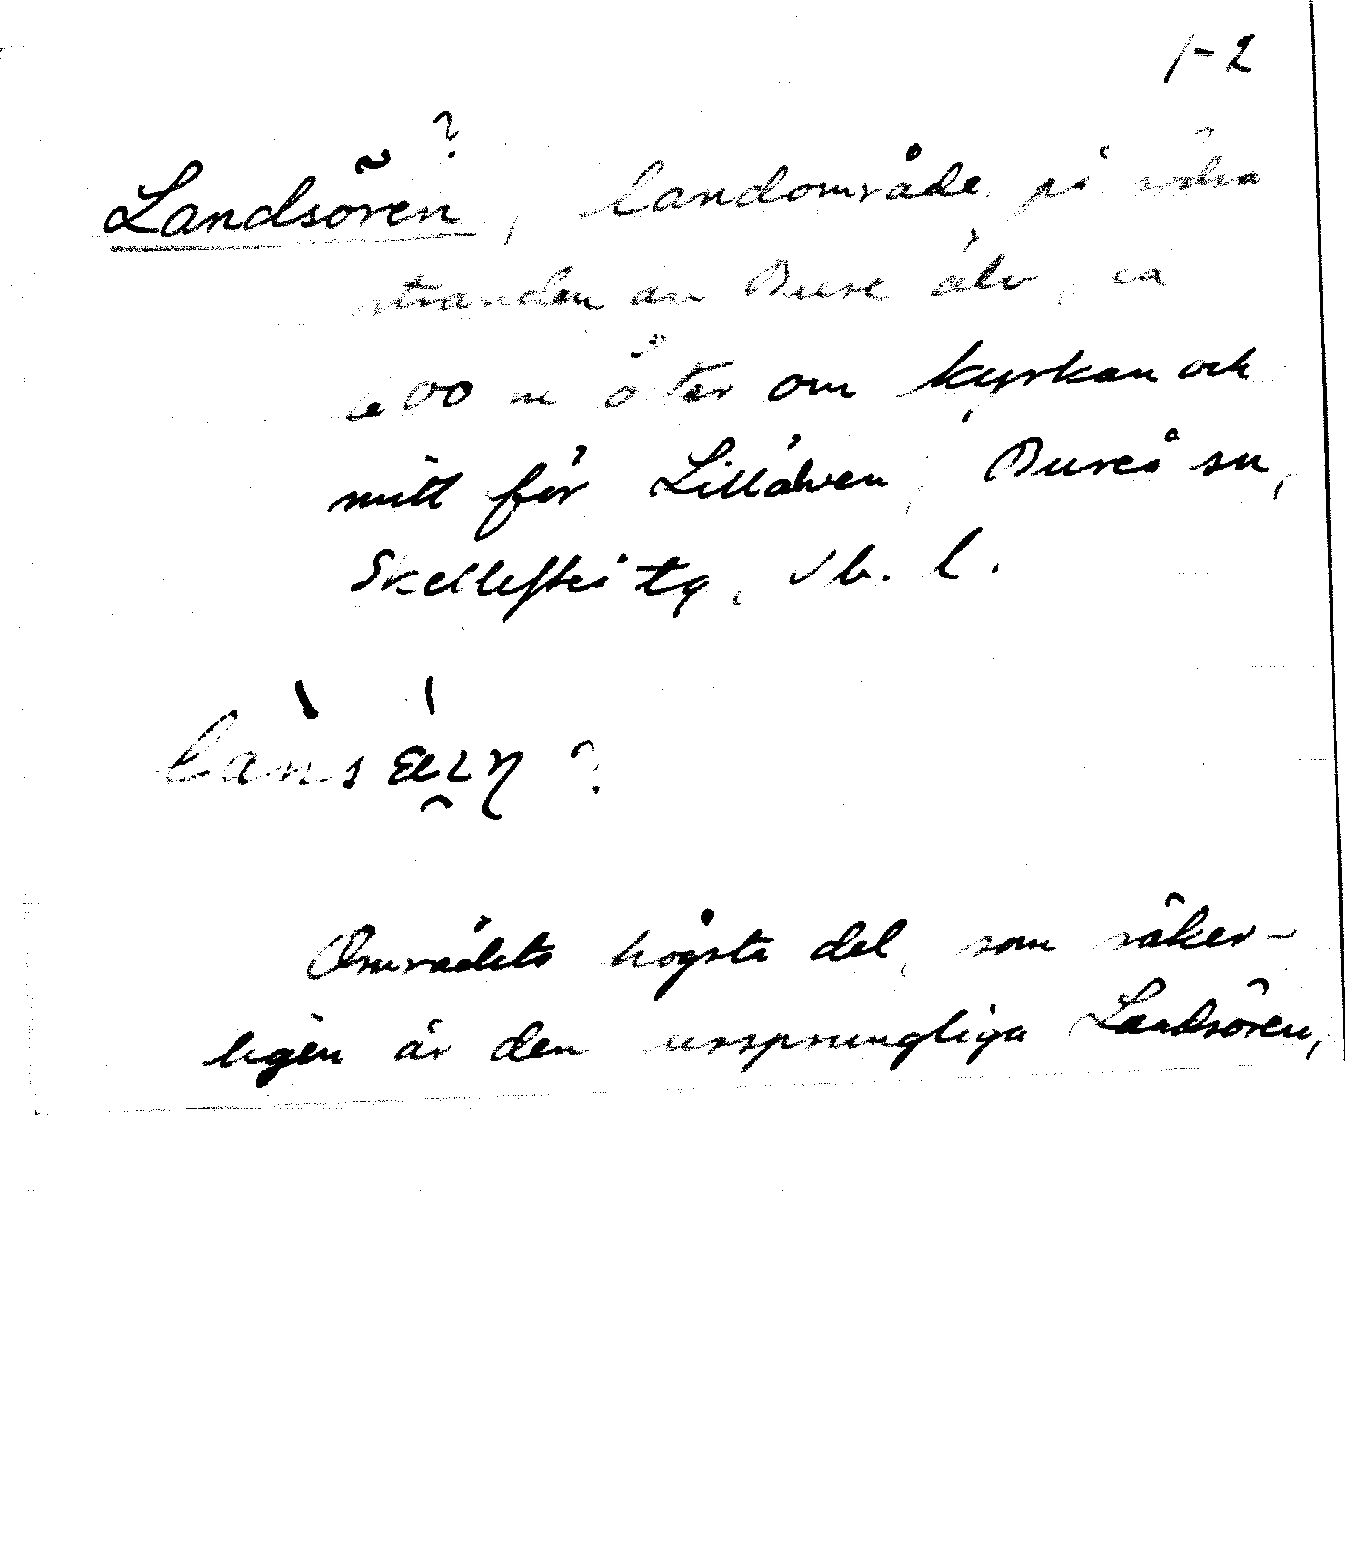 1-2
?
Landsören, landområde på södra
stranden av Bure älv, ca
600 m öster om kyrkan och
mitt för Lillälven, Bureå sn,
Skellefteå tg, Vb. l.
Områdets högsta del, som säker-
ligen är den ursprungliga Landsören,